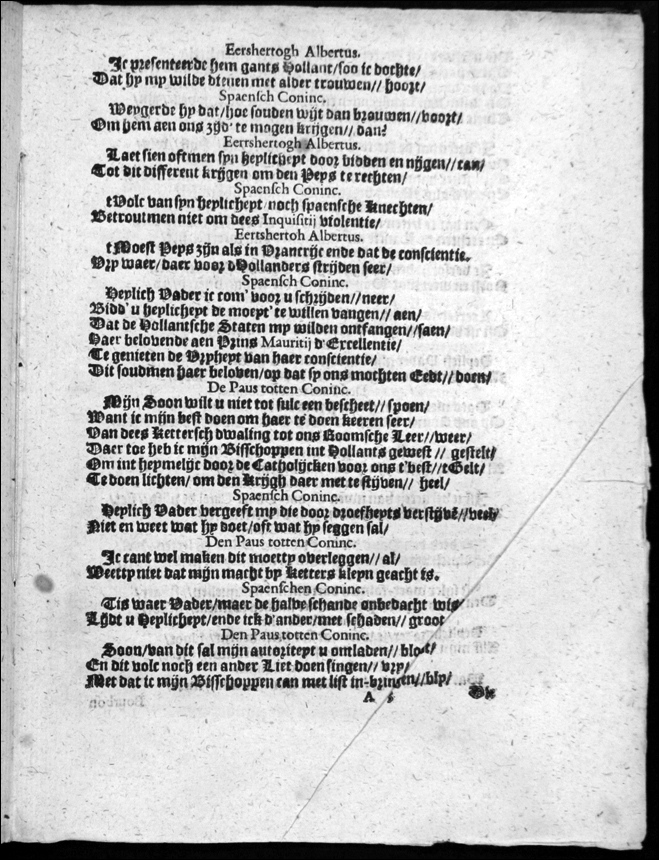 Eershertogh Albertus.
Ic presenteerde hem gants Hollant/soo ic dochte/
Dat hy my wilde dienen met alder trouwen// hoort/
Spaensch Coninc.
Weygerde hy dat/hoe souden wijt dan brouwen//voort/
Om hem aen ons zijd' te mogen krijgen// dan?
Eertshertogh Albertus.
Laet sien oftmen syn heylicheyt door bidden en nijgen//can/
Tot dit different krijgen om den Peys te rechten/
Spaensch Coninc.
tVolc van syn heylicheyt/noch spaensche knechten/
Betroutmen niet om dees Inquisitij violentie/
Eertshertoh Albertus.
tMoest Peys zijn als in Vrancrijc ende dat de conscientie.
Vry waer/daer voor dHollanders strijden seer/
Spaensch Coninc.
Heylich Vader ic com' voor u schrijden//neer/
Bidd' u heylicheyt de moeyt' te willen vangen// aen/
Dat de Hollantsche Staten my wilden ontfangen//saen/
Haer belovende aen Prins Mauritij d'Excellentie/
Te genieten de Vryheyt van haer conscientie/
Dit soudmen haer beloven/op dat sy ons mochten Eedt// doen/
De Paus totten Coninc.
Mijn Soon wilt u niet tot sulc een bescheet// spoen/
Want ic mijn best doen om haer te doen keeren seer/
Van dees Kettersch dwaling tot ons Roomsche Leer//weer/
Daer toe heb ic mijn Bisschoppen int Hollants gewest // gestelt/
Om int heymelijt door de Catholijcken voor ons t'best//tGelt/
Te doen lichten/ om den Krijgh daer met te stijven// heel/
Spaensch Coninc.
Heylich Vader vergeeft my die door droefheyts verstijvē//veel/
Niet en weet wat hy doet/oft wat hy seggen sal/
Den Paus totten Coninc.
Ic cant wel maken dit moetty overleggen// al/
Weetty niet dat mijn macht by Ketters kleyn geacht is.
Spaenschen Coninc.
Tis waer Vader/maer de halve schande onbedacht wis/
Lijdt u Heylicheyt/ende ick d'ander/met schaden// groot
Den Paus totten Coninc.
Soon/van dit sal mijn autoriteyt u omladen// bloot/
En dit volc noch een ander Liet doen singen// vry/
Met dat ic mijn Bisschoppen can met list in-bringen//bly/
A